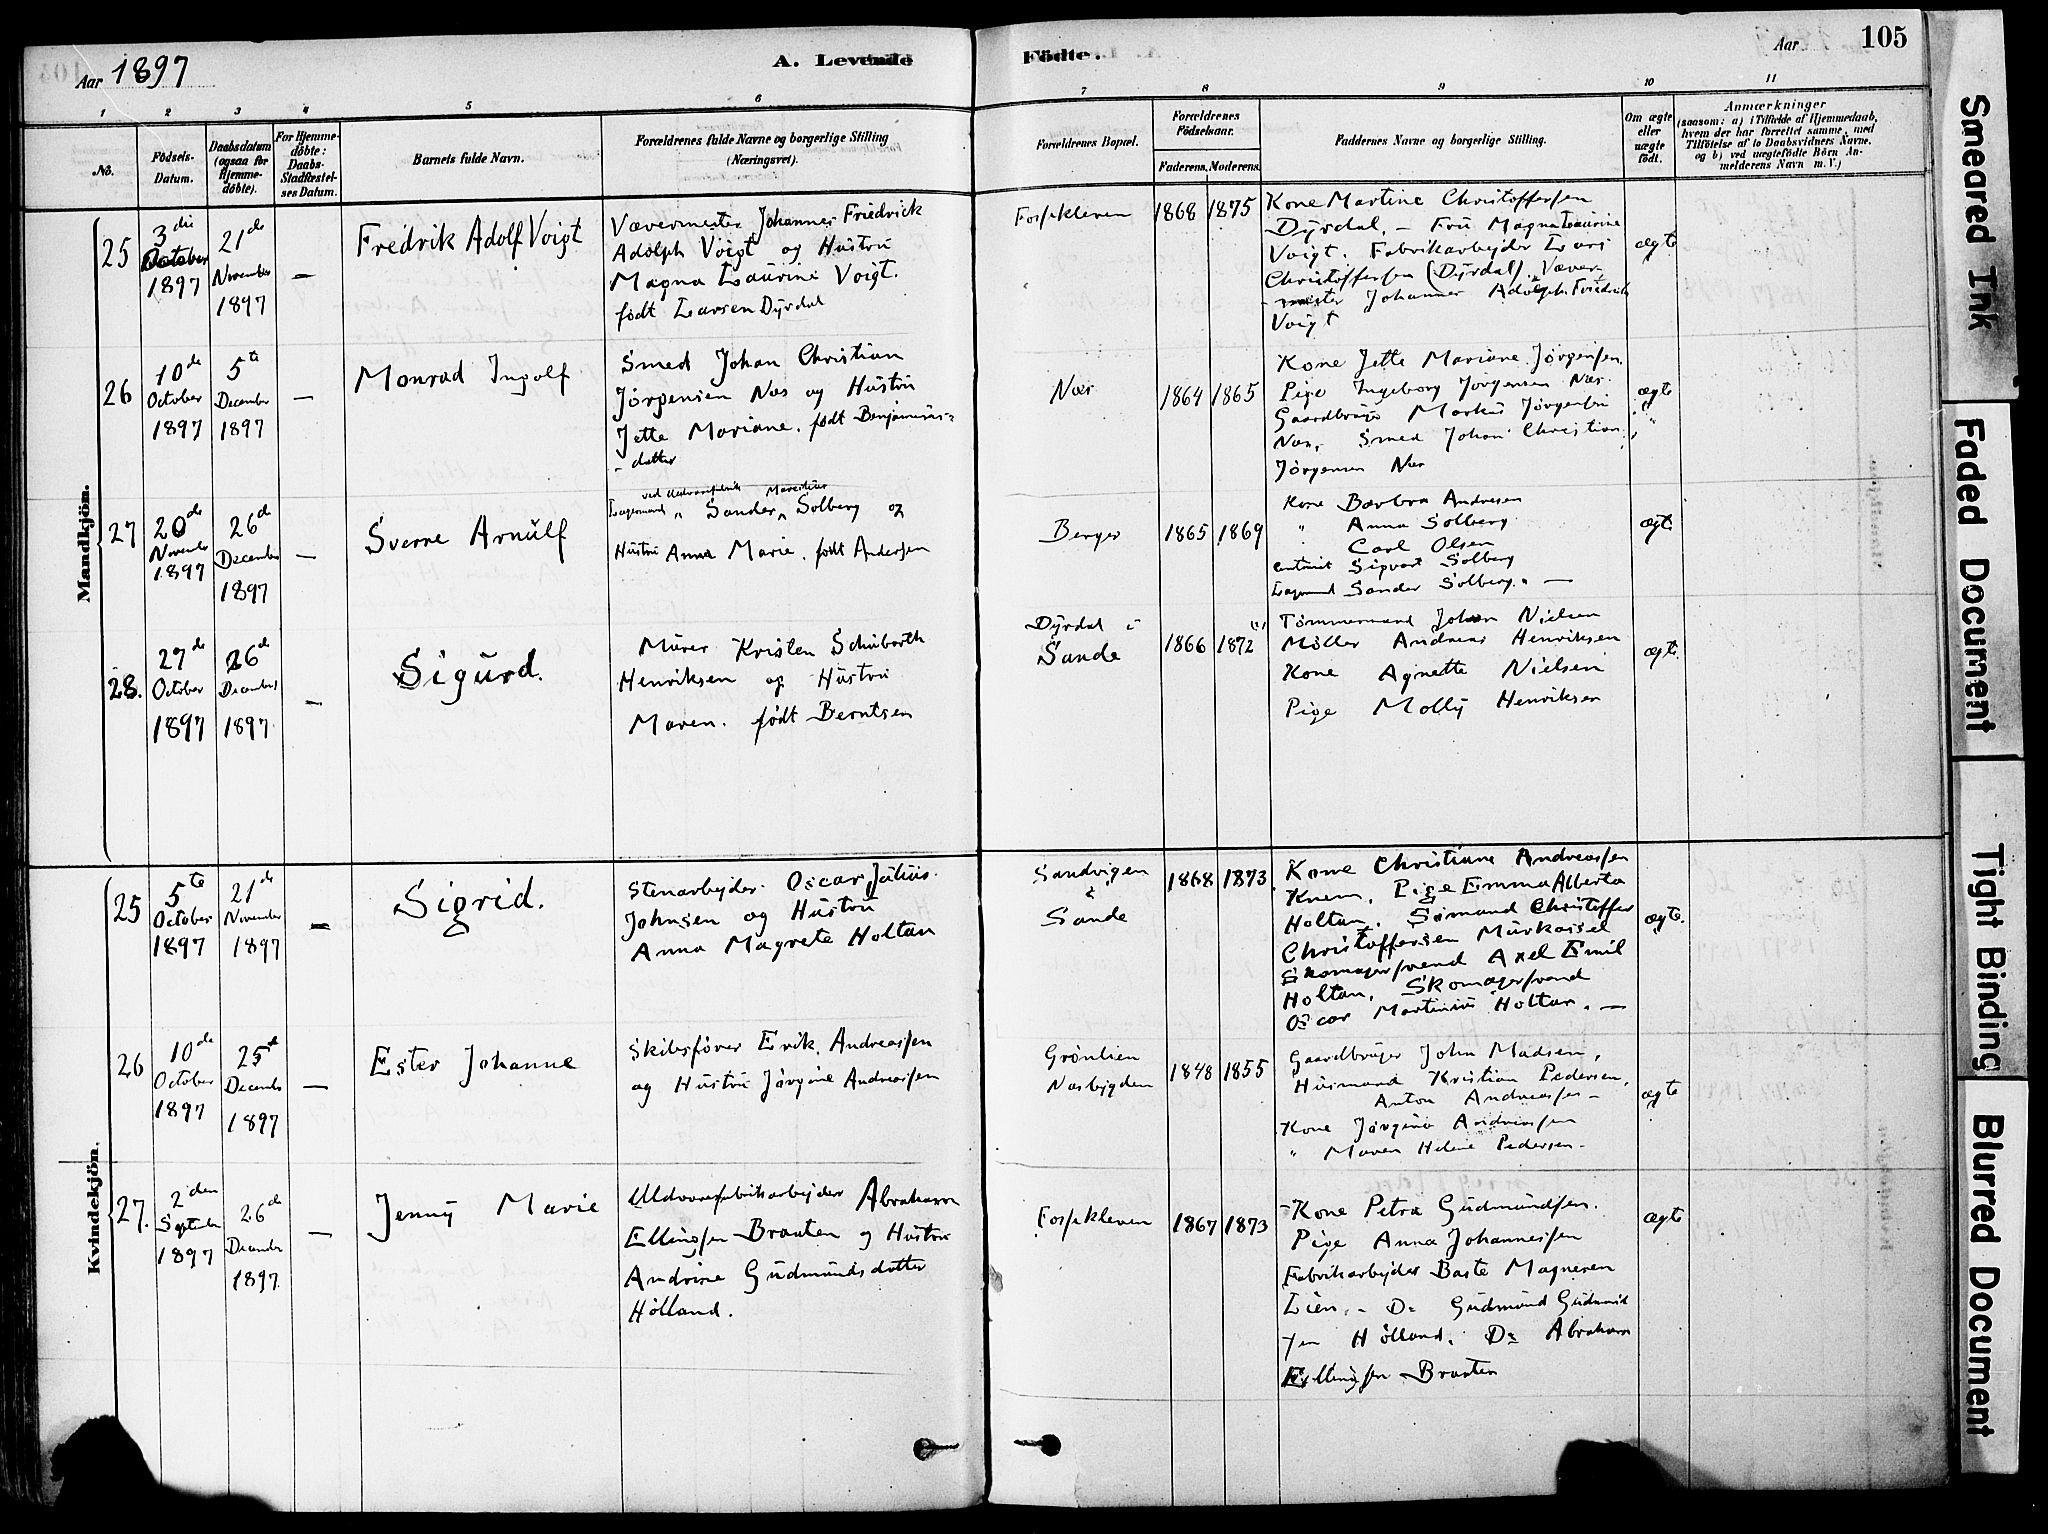 Aar 1897
A. Levende
Fødte.
Aar
105
1
2
3
4
5
6
7
8
9
10
11
No.
Fødsels-
Datum.
Daabsdatum
(ogsaa for
Hjemme-
døbte).
For Hjemme-
døbte:
Daabs-
Stadfæstel-
ses Datum.
Barnets fulde Navn.
Forældrenes fulde Navne og borgerlige Stilling
(Næringsvei).
Forældrenes Bopæl.
Forældrenes
Fødselsaar.
Faderens.
Moderens.
Faddernes Navne og borgerlige Stilling.
Om ægte
eller
uægte
født.
Anmærkninger
(saasom: a) i Tilfælde af Hjemmedaab,
hvem der har forrettet samme, med
Tilføielse af to Daabsvidners Navne.
og b) ved uægtefødte Børn An-
melderens Navn m. V.)
Mandkjøn.
25
3die
October
1897
21de
November
1897
—
Fredrik Adolf Voigt
Vævermester Johannes Friedrick
Adolph Voigt og Hustru
Magna Laurine Voigt.
født Larsen Dyrdal
Fossekleven
1868
1875
Kone Martine Christoffersen
Dyrdal, – Fru Magna Laurine
Voigt. Fabrikarbejder Lars
Christoffersen (Dyrdal). Væver-
mester Johannes Adolph Friedrik
Voigt
ægte
26
10de
October
1897
5te
December
1897
—
Monrad Ingolf
Smed Johan Christian
Jørgensen Næs og Hustru
Jette Mariane. født Benjamins-
- datter
Næs
1864
1865
Kone Jette Mariane Jørgensen.
Pige Ingeborg Jørgensen Næs.
Gaardbruger Markus Jørgensen
Næs, Smed Johan Christian
Jørgensen Næs
ægte
27
20de
November
1897
26d
December
1897
—
Sverre Arnulf
Lagermand Sander Solberg og
Hustru Anna Marie. født Andersen
Berger
1865
1869
Kone Barbra Andresen
" Anna Solberg
" Carl Olsen
Sigvart Solberg
Lagermand Sander Solberg. —
ægte
28.
27de
October
1897
26de
December
1897
—
Sigurd.
Murer Kristen Schubarth
Henriksen og Hustru
Maren. født Berntsen
Dyrdal i
Sande
1866
1872
Tømmermand Johan Nielsen
Møller Andreas Henriksen
Kone Agnette Nielsen
Pige Molly Henriksen
ægte.
Kvindekjøn.
25
5te
October
1897
21de
November
1897
—
Sigrid.
Stenarbejder. Oscar Julius.
Johnsen og Hustru
Anna Magrete Holtan
Sandvigen
i
Sande
1868
1873
Kone Christiane Andreassen
Knem, Pige Emma Alberta
Holtan. Sømand Christoffer
Christoffersen Murkassel
Skomagersvend Axel Emil
Holtan. Skomagersvend
Oscar Martinius Holtan. —
ægte.
26
10de
October
1897
25de
December
1897
—
Ester Johanne
Skibsfører Erik. Andreassen
og Hustru Jørgine Andreassen
Grønlien
Nesbygden
1848
1855
Gaardbruger John Madsen,
Husmand Kristian Pedersen,
Anton Andreassen –
Kone Jørgine Andreassen
" Maren Helene Pedersen.
ægte
27.
2den
September
1897
26de
December
1897.
—
Jenny Marie
Uldvarefabrikarbejder Abraham
Ellingsen Braaten og Hustru
Andrine Gudmundsdatter
Hølland.
Fossekleven
1867
1873
Kone Petra Gudmundsen.
Pige Anna Johannessen
Fabrikarbejder Baste Magnesen
Lien. – Do Gudmund Gudmund
sen Hølland. Do Abraham
Ellingsen Braaten
ægte
Smeared Ink
Faded Document
Tight Binding
Blurred Document